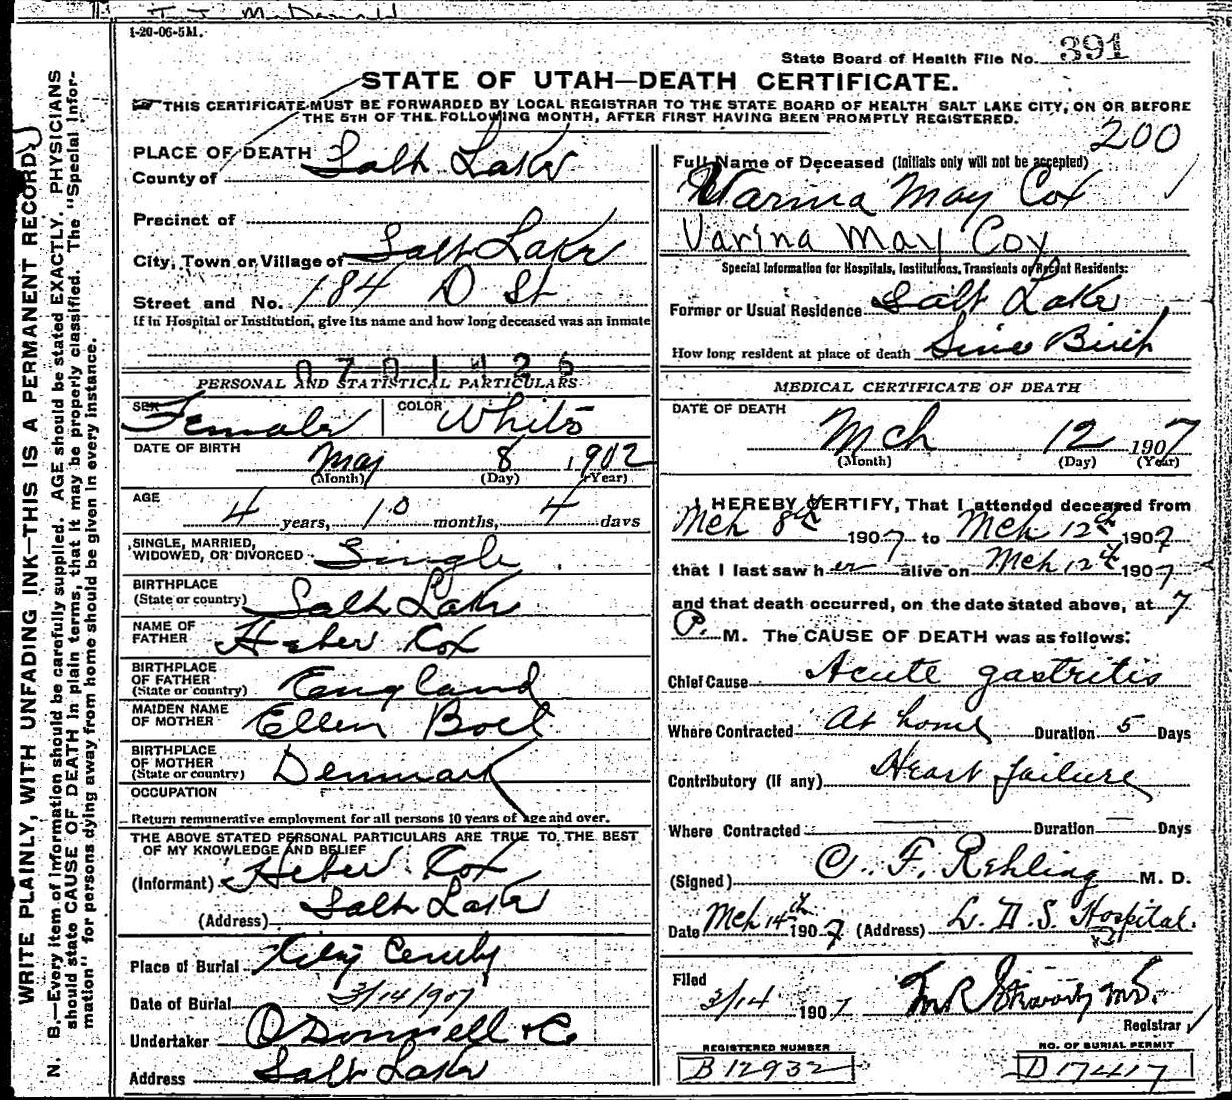 T. J. McDonald
1-20-06-5M.
State Board of Health File No. 391
STATE OF UTAH—DEATH CERTIFICATE.
THIS CERTIFICATE MUST BE FORWARDED BY LOCAL REGISTRAR TO THE STATE BOARD OF HEALTH SALT LAKE CITY, ON OR BEFORE
THE 5TH OF THE FOLLOWING MONTH, AFTER FIRST HAVING BEEN PROMPTLY REGISTERED.
200
WRITE PLAINLY, WITH UNFADING INK—THIS IS A PERMANENT RECORD
N. B.—Every item of information should be carefully supplied. AGE should be stated EXACTLY. PHYSICIANS
should state CAUSE OF DEATH in plain terms, that it may be properly classified. The "Special Infor-
mation" for persons dying away from home should be given in every instance.
PLACE OF DEATH
County of Salt Lake
Precinct of
City, Town or Village of Salt Lake
Street and No. 184 D St
If in Hospital or Institution, give its name and how long deceased was an inmate
PERSONAL AND STATISTICAL PARTICULARS
SEX Female COLOR White
DATE OF BIRTH May 8 1902
(Month) (Day) (Year)
AGE
4 years, 10 months, 4 days
SINGLE, MARRIED,
WIDOWED, OR DIVORCED Single
BIRTHPLACE
(State or country) Salt Lake
NAME OF
FATHER Heber Cox
BIRTHPLACE
OF FATHER
(State or country) England
MAIDEN NAME
OF MOTHER Ellen Boel
BIRTHPLACE
OF MOTHER
(State or country) Denmark
OCCUPATION
Return remunerative employment for all persons 10 years of age and over.
THE ABOVE STATED PERSONAL PARTICULARS ARE TRUE TO THE BEST
OF MY KNOWLEDGE AND BELIEF
(Informant) Heber Cox
(Address) Salt Lake
Place of Burial City Cemty
Date of Burial 3/14/907
Undertaker O'Donnell & Co.
Address Salt Lake
Full Name of Deceased (Initials only will not be accepted)
Varina May Cox
Varina May Cox
Special Information for Hospitals, Institutions, Transients or Recent Residents:
Former or Usual Residence Salt Lake
How long resident at place of death Since Birth
MEDICAL CERTIFICATE OF DEATH
DATE OF DEATH
Mch 12 1907
(Month) (Day) (Year)
I HEREBY CERTIFY, That I attended deceased from
Mch 8th 1907 to Mch 12th 1907
that I last saw her alive on Mch 12th 1907
and that death occurred, on the date stated above, at 7
P. M. The CAUSE OF DEATH was as follows:
Chief Cause Acute gastritis
Where Contracted At home Duration 5 Days
Contributory (if any) Heart failure
Where Contracted Duration Days
(Signed) C. F. Rehling M. D.
Date Mch 14th 1907 (Address) L. D. S. Hospital.
Filed
3/14 1907
Registrar
REGISTERED NUMBER
B 12932
NO. OF BURIAL PERMIT
D 17417